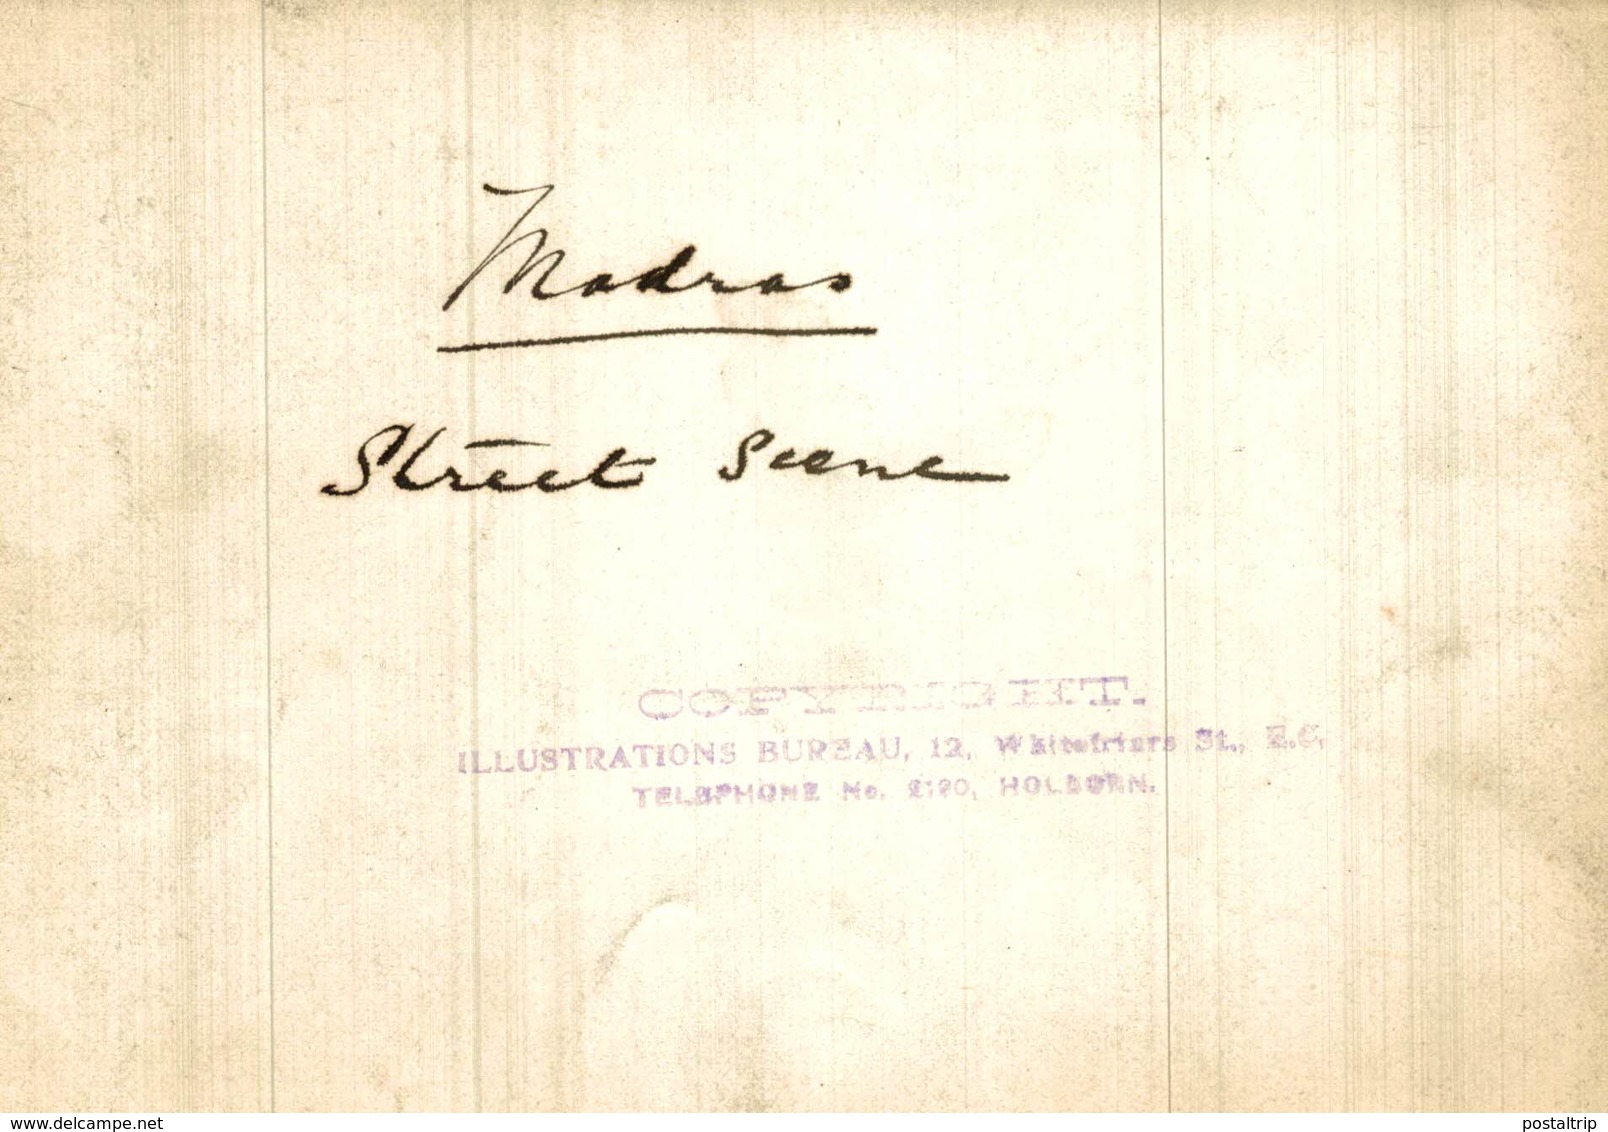 Madras
Street Scene
COPYRIGHT.
ILLUSTRATIONS BUREAU, 12, Whitefriars St., E.C.
TELEPHONE No. 2190, HOLBORN.
delcampe.net
postaltrip